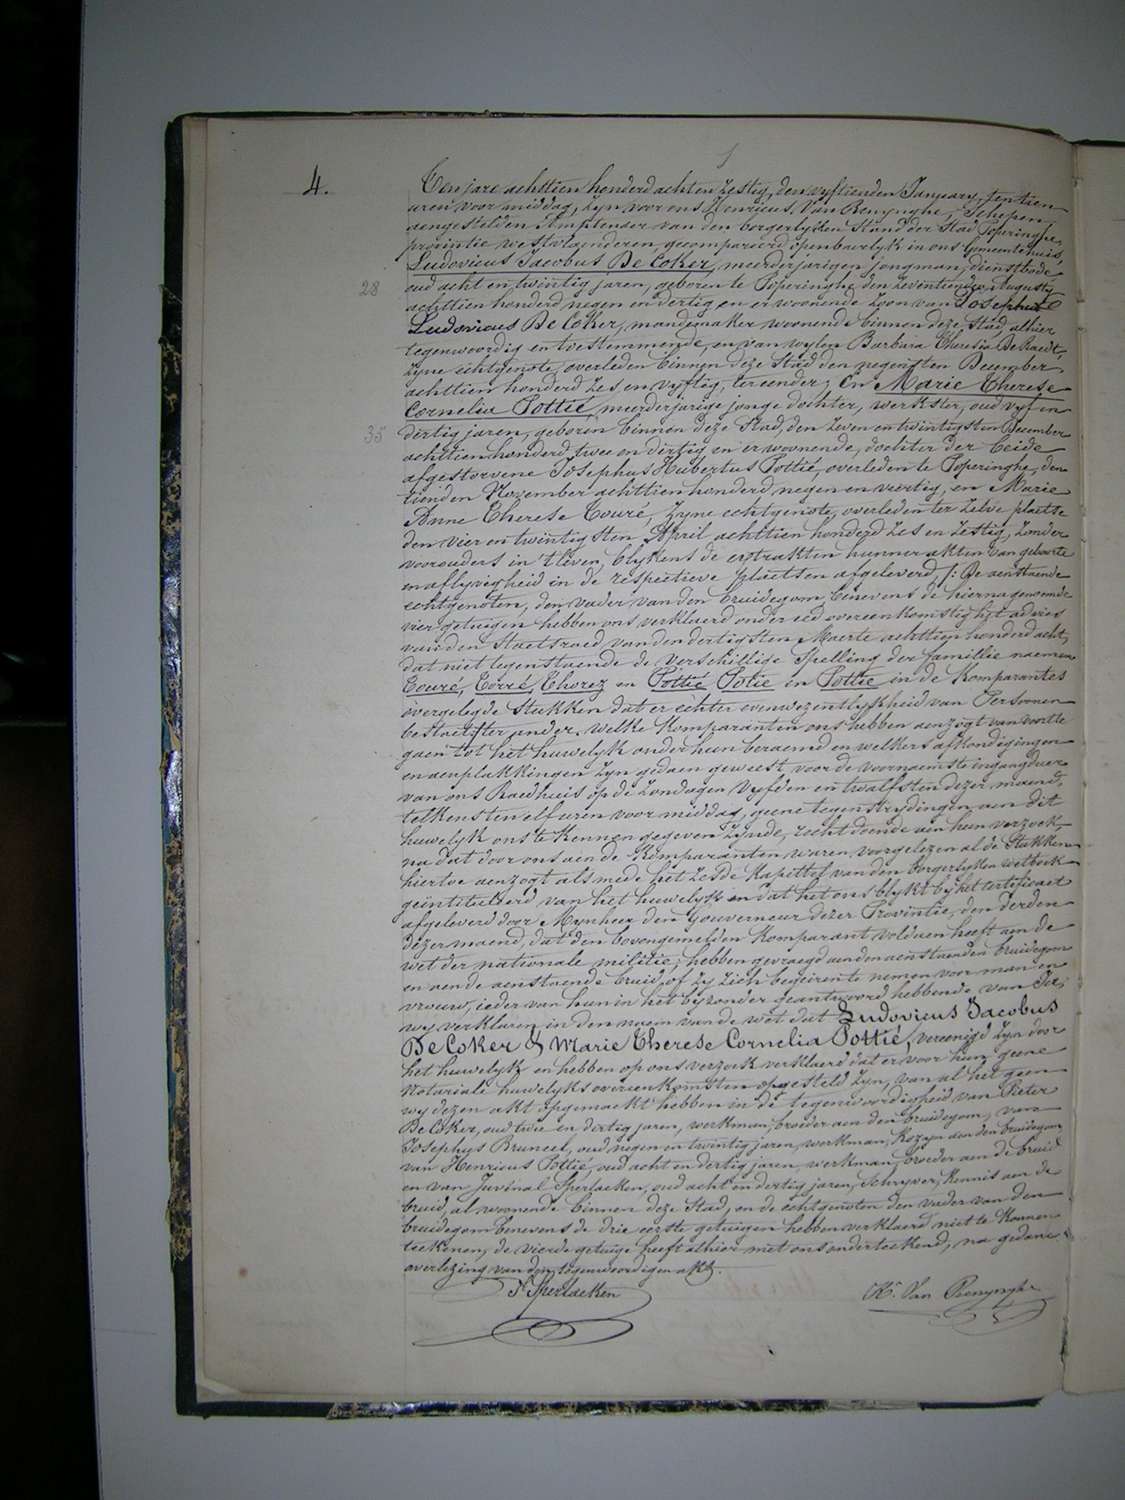 4.
Ten jare achttien honderd acht en zestig, den vyftienden January, ten tien
uren voor middag, zyn voor ons Henricus Van Renynghe, Schepen,
aengestelden Amptenaer van den borgerlyken Stand der Stad Poperinghe,
provintie westvlaenderen, gecompareerd openbaerlyk in ons Gemeentehuis,
Ludovicus Jacobus De Coker, meerderjarigen jongman, dienstbode
28
oud acht en twintig jaren, geboren te Poperinghe den zeventienden Augusty
achttien honderd negen en dertig en er woonende, zoon van Josephus
Ludovicus De Coker, mandemaker woonende binnen deze Stad, alhier
tegenwoordig en toestemmende, en van wylen Barbara Theresia De Raedt,
zyne echtgenote, overleden binnen deze Stad den negensten December
achttien honderd zes en vyftig, ter eender; En Marie Therese
Cornelia Pottié, meerderjarige jonge dochter, werkster, oud vyf en
35
dertig jaren, geboren binnen deze Stad, den zeven en twintigsten December
achttien honderd twee en dertig en er woonende, dochter der beide
afgestorvene Josephus Hubertus Pottié, overleden te Poperinghe, den
tienden November achttien honderd negen en veertig, en Marie
Anne Therese Touré, zyne echtgenote, overleden ter zelve plaetse
den vier en twintigsten April achttien honderd zes en zestig, zonder
voorouders in 't leven, blykens de extrakten hunner akten van geboorte
en aflyvigheid in de respective plaetsen afgeleverd, /: De aenstaende
echtgenoten, den vader van den bruidegom, benevens de hiernagenoemde
vier getuigen hebben ons verklaerd onder eed overeenkomstig het advies
van den Staetsraed van den dertigsten Maerte achttien honderd acht,
dat niet tegenstaende de verschillige spelling der famillie naemen
Touré, Torré, Thorez en Pottié Potie en Pottie in de komparantes
overgelegde stukken dat er echter eenwezentlykheid van Persoonen
bestaet :/ ter ander, welke komparanten ons hebben aenzogt van voortte
gaen tot het huwelyk onder hun beraemd en welkers afkondigingen
en aenplakkingen zyn gedaen geweest, voor de voornaemste ingangdeur
van ons Raedhuis op de zondagen vyfden en twalfsten dezer maend,
telkens ten elf uren voor middag, geene tegenstrydingen aen dit
huwelyk ons te kennen gegeven zynde, recht doende aen hun verzoek,
na dat door ons aen de komparanten waren voorgelezen al de stukken
hiertoe aenzogt als mede het zesde Kapittel van den borgerlyken wetboek
geïntituleerd van het huwelyk en dat het ons blykt by het certificaet
afgeleverd door Mynheer den Gouverneur dezer Provintie, den derden
dezer maend, dat den bovengemelden komparant voldaen heeft aen de
wet der nationale militie; hebben gevraegd aen den aenstaenden bruidegom
en aen de aenstaende bruid, of zy zich begeiren te nemen voor man en
vrouw, ieder van hun in het byzonder geantwoord hebbende van Ja,
wy verklaren in den naem van de wet dat Ludovicus Jacobus
De Coker & Marie Therese Cornelia Pottié, vereenigd zyn door
het huwelyk en hebben op ons verzoek verklaerd dat er voor hun geene
Notariale huwelyks overeenkomsten opgesteld zyn, van al het geen
wy dezen akt opgemaekt hebben in de tegenwoordigheid van Pieter
De Coker, oud twee en dertig jaren, werkman, broeder aen den bruidegom, van
Josephus Bruneel, oud negen en twintig jaren, werkman, Kozyn aen den bruidegom
van Henricus Pottié, oud acht en dertig jaren, werkman, broeder aen de bruid
en van Juvenal Sperlaeken, oud acht en dertig jaren, Schryver, Kennis aen de
bruid, al woonende binnen deze Stad, en de echtgenoten den vader van den
bruidegom benevens de drie eerste getuigen hebben verklaerd niet te konnen
teekenen, de vierde getuige heeft alhier met ons onderteekend, na gedane
overlezing van den tegenwoordigen akt.
Jl Sperlaeken
H. Van Renynghe